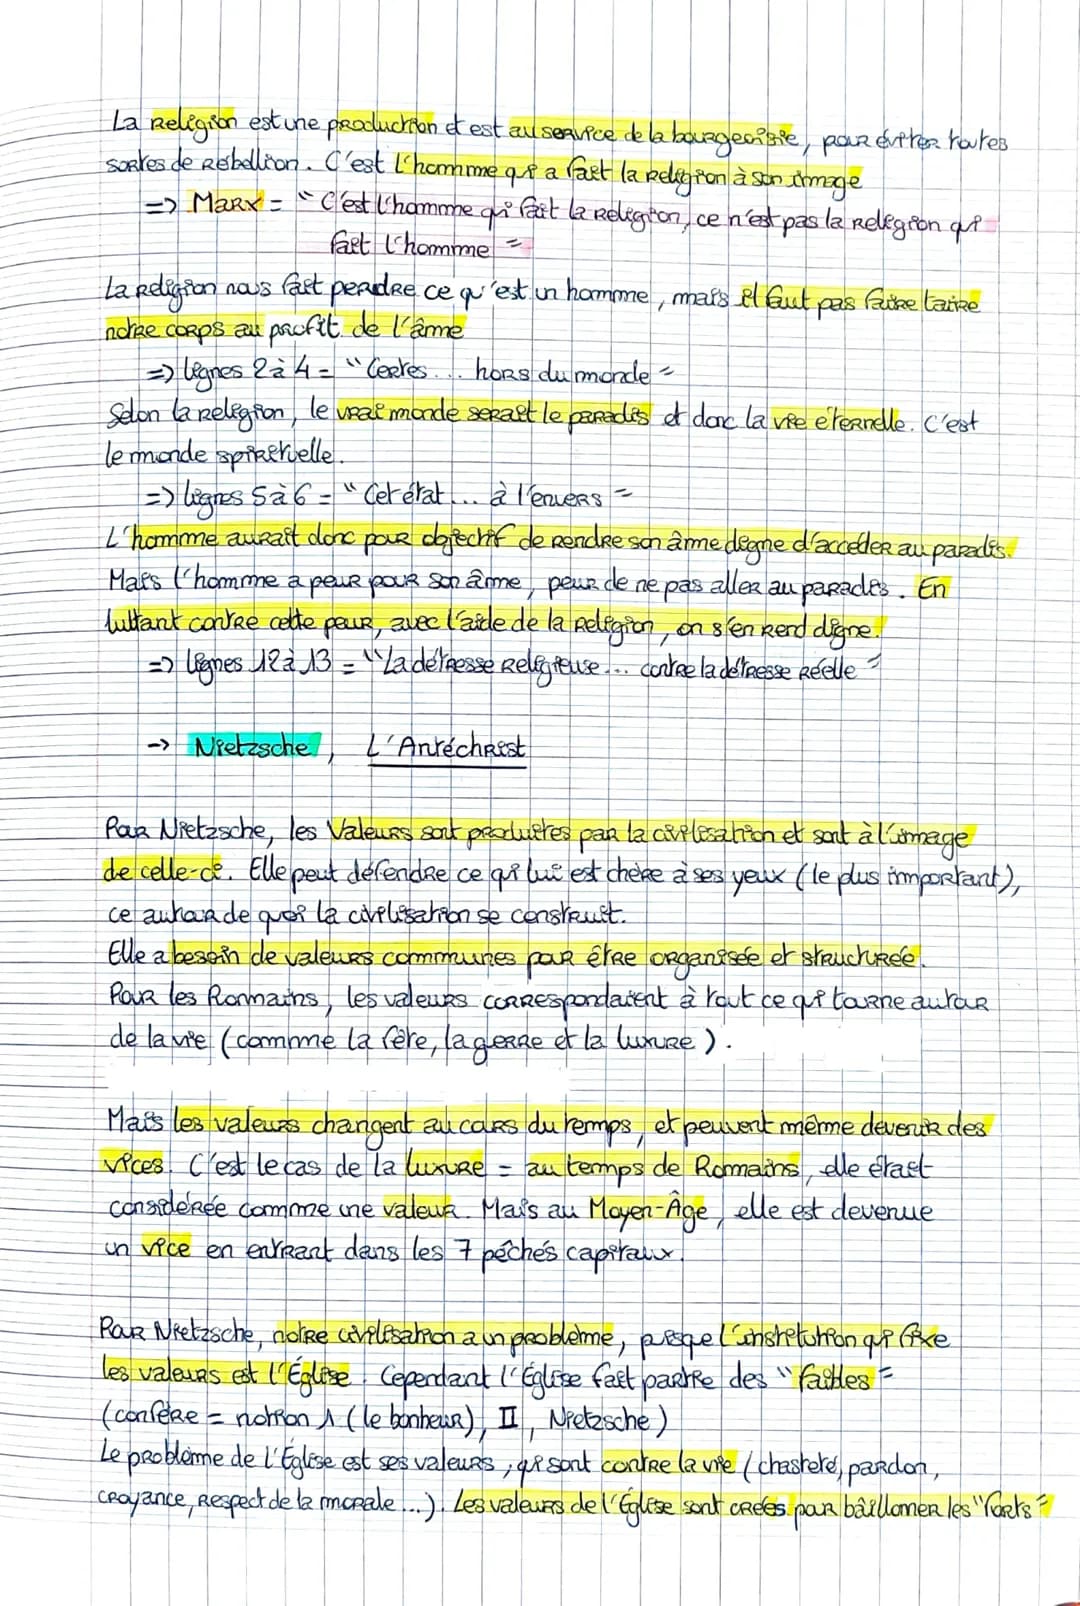 La Religion est une production et est au service de la bourgeoisie, pour éviter toutes
sortes de Rébellion. C'est l'homme qui a fait la Religion à son image
=> Marx = " C'est l'homme qui fait la Religion, ce n'est pas la religion qui
fait l'homme "
La Religion nous fait perdre ce qu'est un homme, mais il faut pas faire taire
notre corps au profit de l'âme
=> lignes 2 à 4 = " Certes ... hors du monde "
Selon la religion, le vrai monde serait le paradis et donc la vie éternelle. C'est
le monde spirituelle.
=> lignes 5 à 6 = " Cet état ... à l'envers "
L'homme aurait donc pour objectif de rendre son âme digne d'accéder au paradis.
Mais l'homme a peur pour son âme, peur de ne pas aller au paradis. En
luttant contre cette peur, avec l'aide de la religion, on s'en rend digne.
=> lignes 12 à 13 = " La détresse Religieuse ... contre la détresse réelle "
-> Nietzsche, L'Antéchrist
Pour Nietzsche, les Valeurs sont produites par la civilisation et sont à l'image
de celle-ci. Elle peut défendre ce qui lui est chère à ses yeux (le plus important),
ce autour de quoi la civilisation se construit.
Elle a besoin de valeurs communes pour être organisée et structurée.
Pour les Romains, les valeurs correspondaient à tout ce qui tourne autour
de la vie (comme la fête, la guerre et la luxure).
Mais les valeurs changent au cours du temps, et peuvent même devenir des
vices. C'est le cas de la luxure = au temps de Romains, elle était
considérée comme une valeur. Mais au Moyen-Âge, elle est devenue
un vice en entrant dans les 7 péchés capitaux.
Pour Nietzsche, notre civilisation a un problème, puisque l'institution qui fixe
les valeurs est l'Église. Cependant l'Église fait partie des " faibles "
(confère = notion 1 (le bonheur), II, Nietzsche)
Le problème de l'Église est ses valeurs, qui sont contre la vie (chasteté, pardon,
croyance, respect de la morale ...). Les valeurs de l'Église sont crées pour bâillonner les " forts "